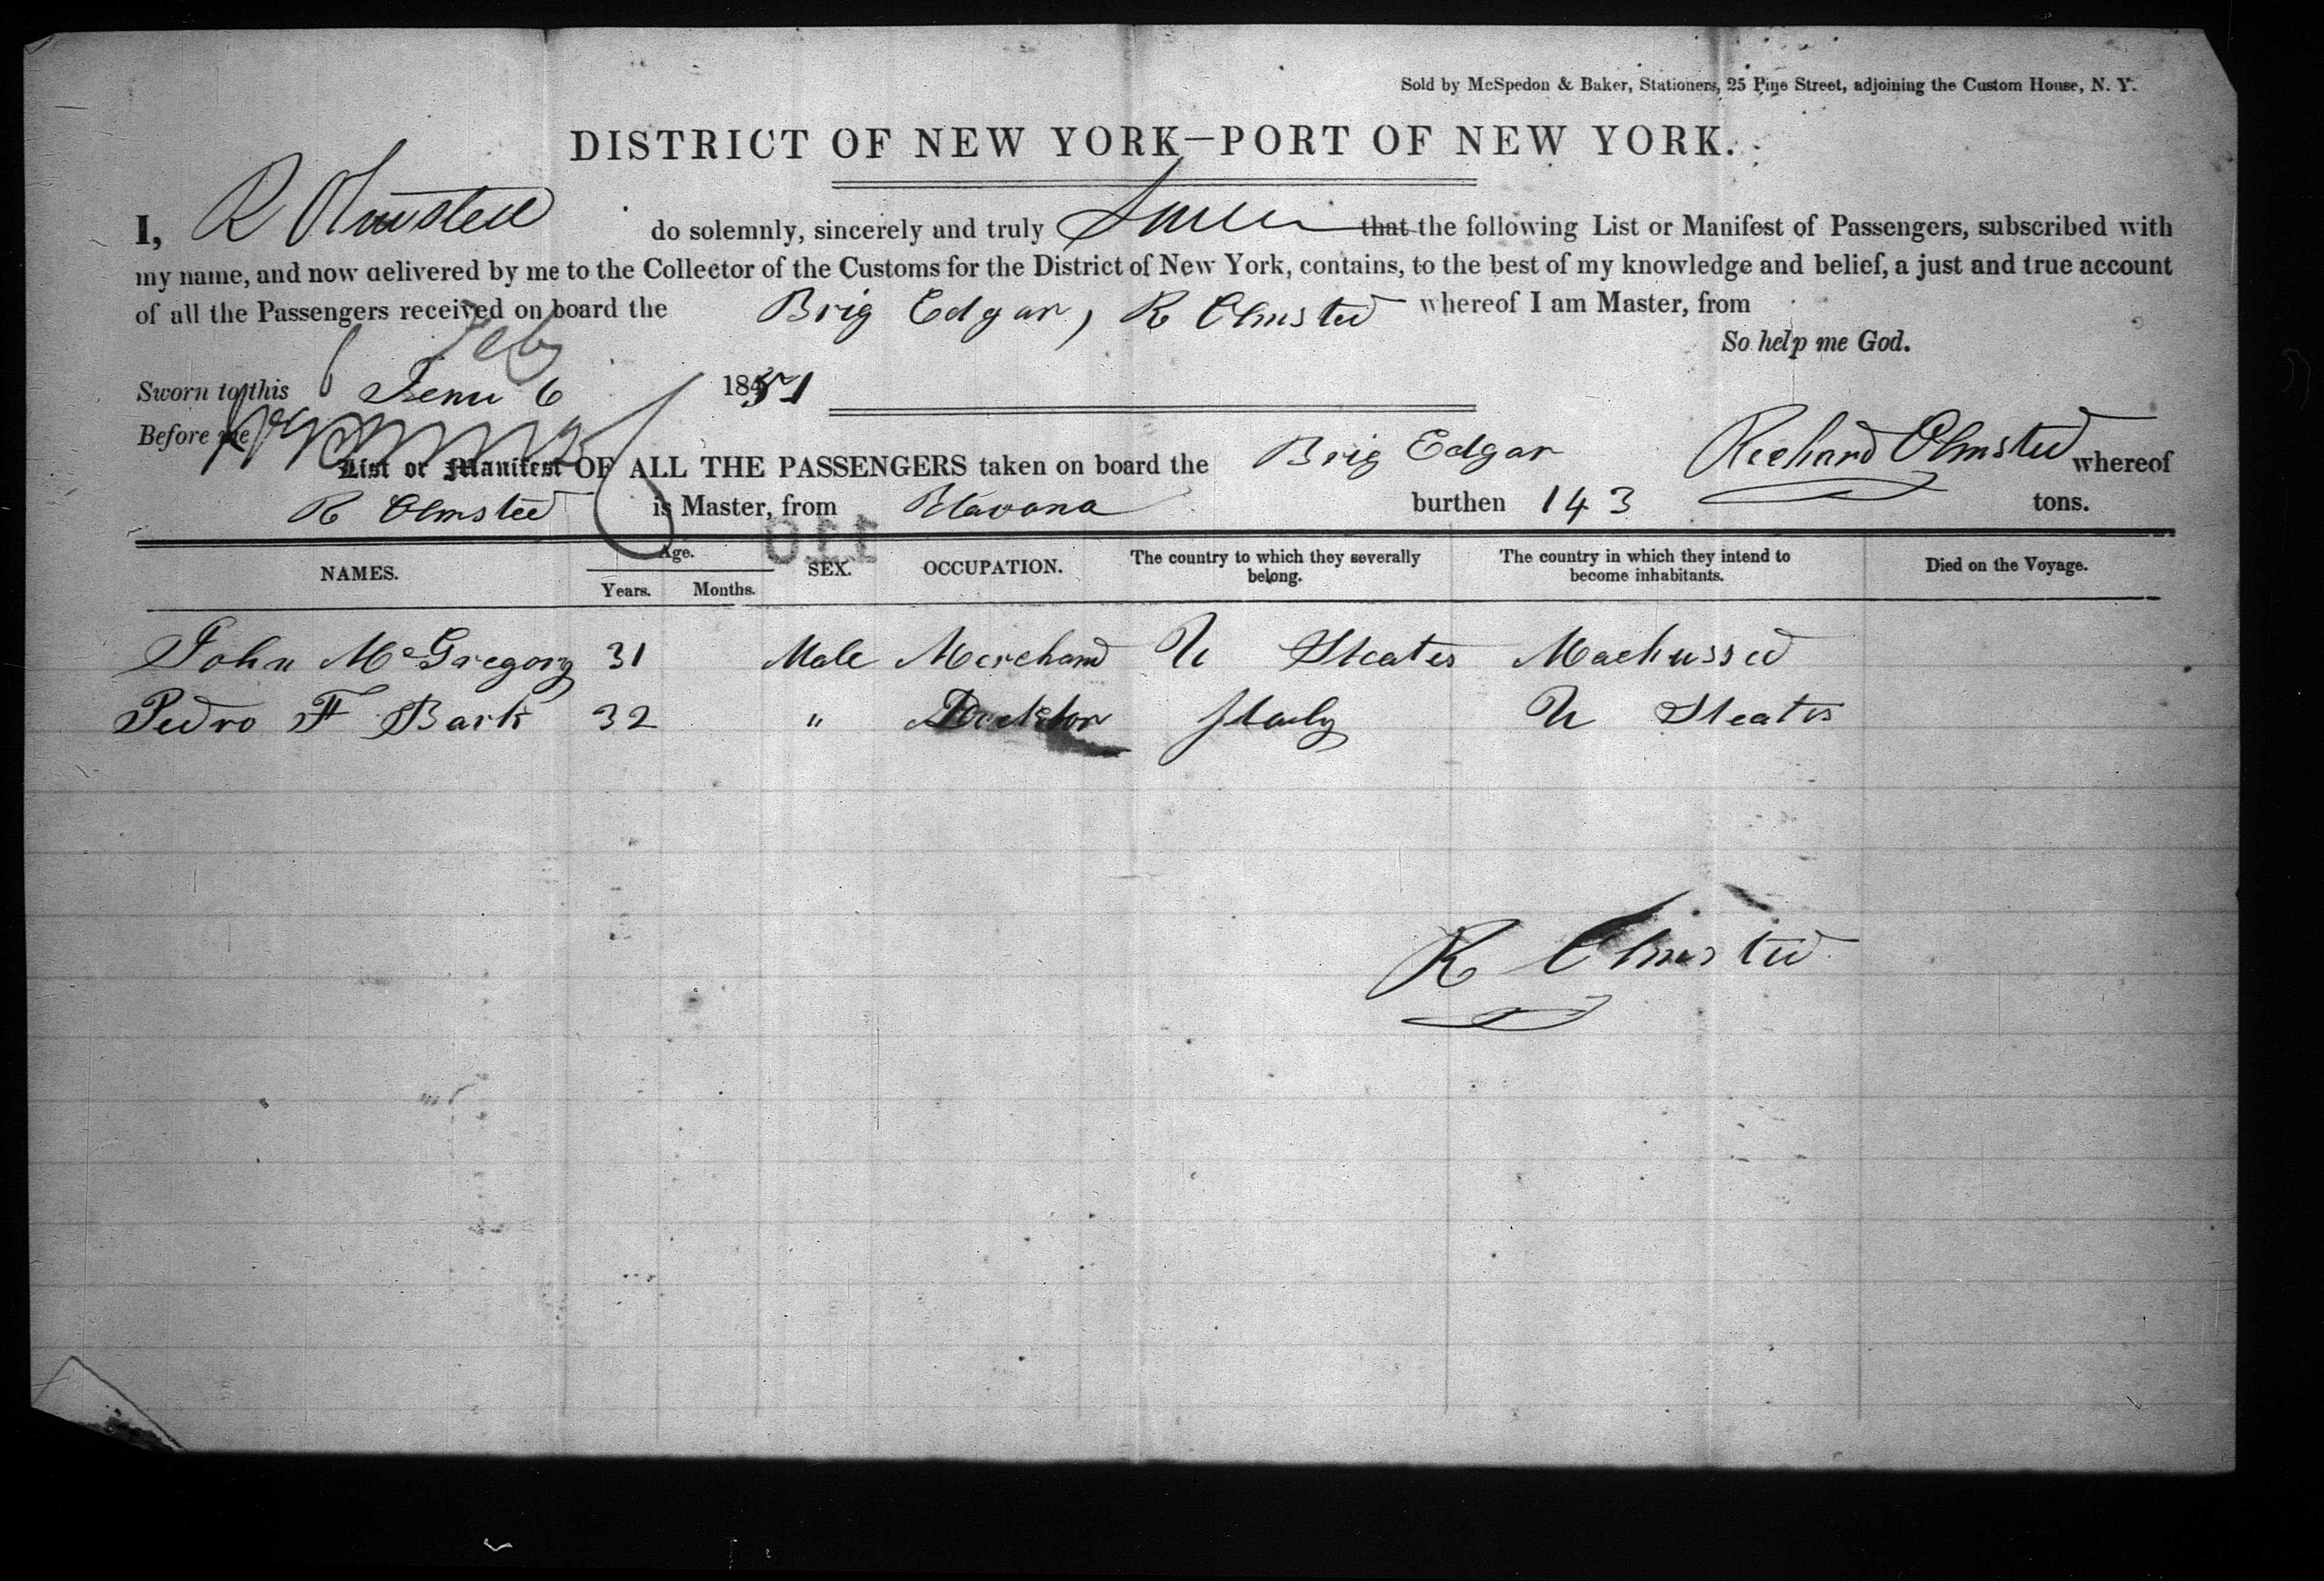 Sold by McSpedon & Baker, Stationers, 25 Pine Street, adjoining the Custom House, N. Y.
DISTRICT OF NEW YORK—PORT OF NEW YORK.
I, R Olmsted do solemnly, sincerely and truly Swear that the following List or Manifest of Passengers, subscribed with
my name, and now delivered by me to the Collector of the Customs for the District of New York, contains, to the best of my knowledge and belief, a just and true account
of all the Passengers received on board the Brig Edgar, R Olmsted whereof I am Master, from
So help me God.
Feby
Sworn to this 6 1851
Before me
Richard Olmsted
List or Manifest OF ALL THE PASSENGERS taken on board the Brig Edgar whereof
R Olmsted is Master, from Havana burthen 143 tons.
110
NAMES. Age. Years. Months. SEX. OCCUPATION. The country to which they severally belong. The country in which they intend to become inhabitants. Died on the Voyage.
John McGregory 31 Male Merchand U Steates Machussed
Pedro F Bark 32 " Docktor Italy U Steates
R Olmsted